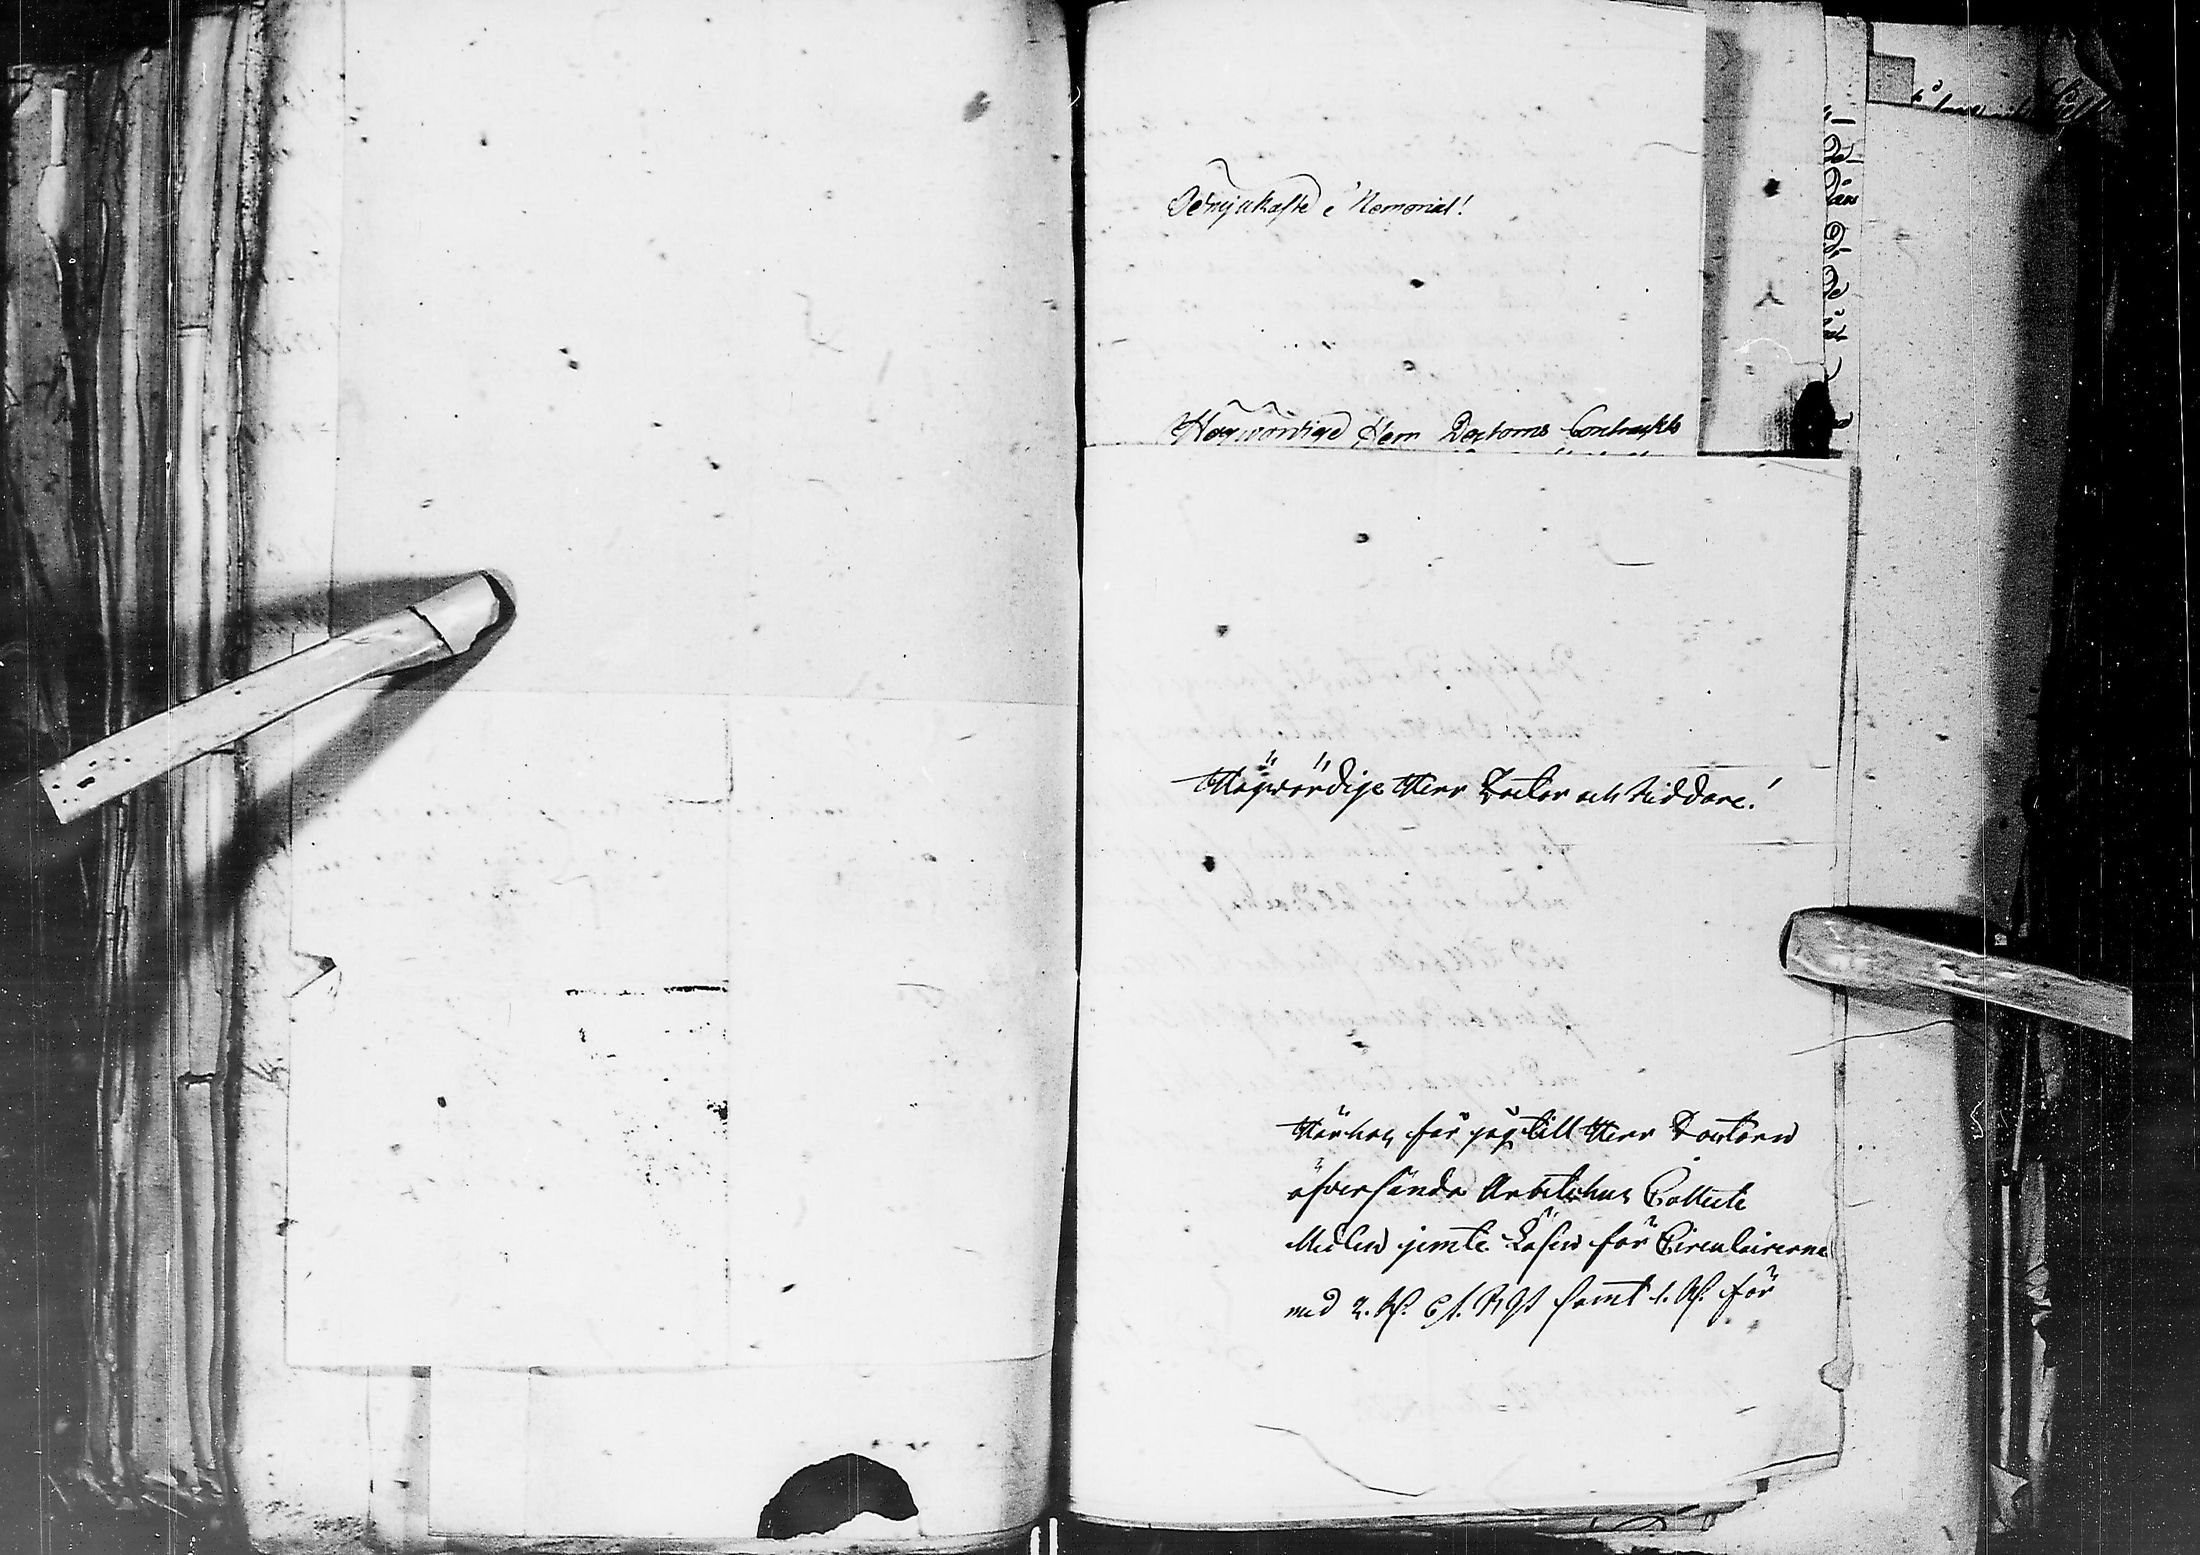 Ödmjukaste Memorial!
Högwördige Herr Doctorns Contrackts
Högwördige Herr Doctor och Riddare!
Härhos får jag till Herr Doctorn
öfversända Arbetshus Collecte
Medlen jemte Lösen för Circulairerne
med 2. Rd. 6 s. Rgs samt 1. Rd. för